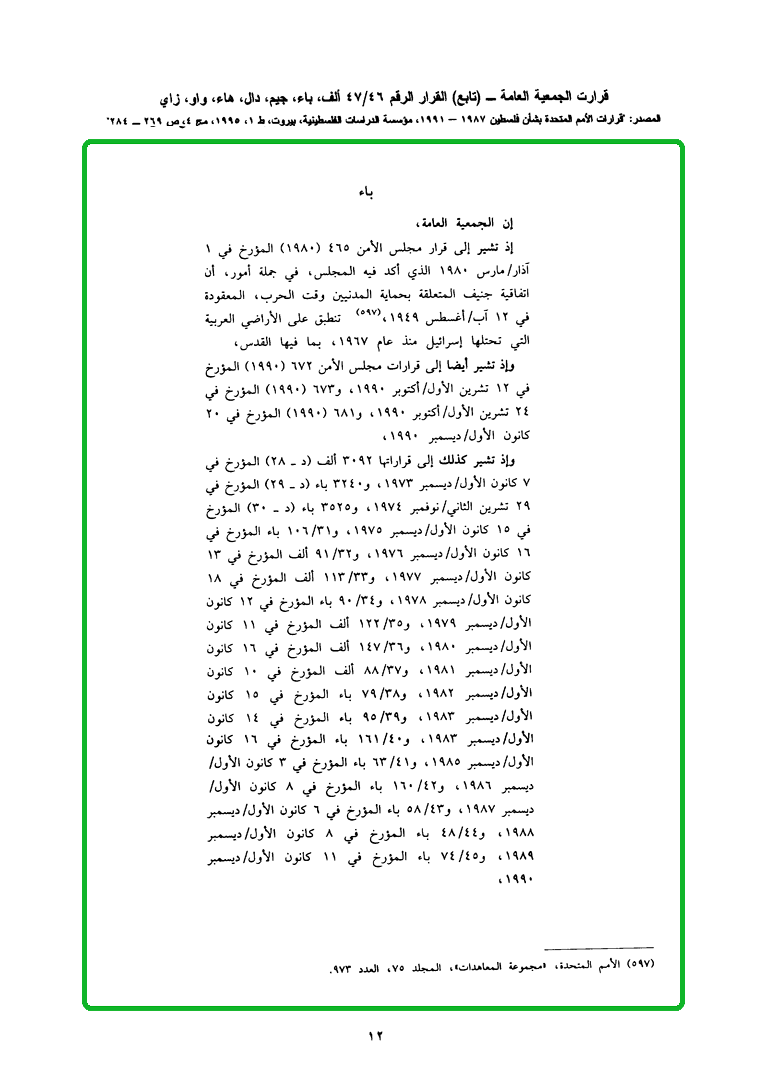 قرارت الجمعية العامة ــ (تابع) القرار الرقم ٤٧/٤٦ ألف، باء، جيم، دال، هاء، واو، زاي
المصدر: "قرارات الأمم المتحدة بشأن فلسطين ١٩٨٧ – ١٩٩١، مؤسسة الدراسات الفلسطينية، بيروت، ط ١، ١٩٩٥، مج ٤، ص ٢٦٩ ــ ٢٨٤"
باء
إن الجمعية العامة،
إذ تشير إلى قرار مجلس الأمن ٤٦٥ (١٩٨٠) المؤرخ في ١
آذار/مارس ١٩٨٠ الذي أكد فيه المجلس، في جملة أمور، أن
اتفاقية جنيف المتعلقة بحماية المدنيين وقت الحرب، المعقودة
في ١٢ آب/أغسطس ١٩٤٩،(٥٩٧) تنطبق على الأراضي العربية
التي تحتلها إسرائيل منذ عام ١٩٦٧، بما فيها القدس،
وإذ تشير أيضا إلى قرارات مجلس الأمن ٦٧٢ (١٩٩٠) المؤرخ
في ١٢ تشرين الأول/أكتوبر ١٩٩٠، و٦٧٣ (١٩٩٠) المؤرخ في
٢٤ تشرين الأول/أكتوبر ١٩٩٠، و٦٨١ (١٩٩٠) المؤرخ في ٢٠
كانون الأول/ديسمبر ١٩٩٠،
وإذ تشير كذلك إلى قراراتها ٣٠٩٢ ألف (د ــ ٢٨) المؤرخ في
٧ كانون الأول/ديسمبر ١٩٧٣، و٣٢٤٠ باء (د ــ ٢٩) المؤرخ في
٢٩ تشرين الثاني/نوفمبر ١٩٧٤، و٣٥٢٥ باء (د ــ ٣٠) المؤرخ
في ١٥ كانون الأول/ديسمبر ١٩٧٥، و١٠٦/٣١ باء المؤرخ في
١٦ كانون الأول/ديسمبر ١٩٧٦، و٩١/٣٢ ألف المؤرخ في ١٣
كانون الأول/ديسمبر ١٩٧٧، و١١٣/٣٣ ألف المؤرخ في ١٨
كانون الأول/ديسمبر ١٩٧٨، و٩٠/٣٤ باء المؤرخ في ١٢ كانون
الأول/ديسمبر ١٩٧٩، و١٢٢/٣٥ ألف المؤرخ في ١١ كانون
الأول/ديسمبر ١٩٨٠، و١٤٧/٣٦ ألف المؤرخ في ١٦ كانون
الأول/ديسمبر ١٩٨١، و٨٨/٣٧ ألف المؤرخ في ١٠ كانون
الأول/ديسمبر ١٩٨٢، و٧٩/٣٨ باء المؤرخ في ١٥ كانون
الأول/ديسمبر ١٩٨٣، و٩٥/٣٩ باء المؤرخ في ١٤ كانون
الأول/ديسمبر ١٩٨٣، و١٦١/٤٠ باء المؤرخ في ١٦ كانون
الأول/ديسمبر ١٩٨٥، و٦٣/٤١ باء المؤرخ في ٣ كانون الأول/
ديسمبر ١٩٨٦، و١٦٠/٤٢ باء المؤرخ في ٨ كانون الأول/
ديسمبر ١٩٨٧، و٥٨/٤٣ باء المؤرخ في ٦ كانون الأول/ديسمبر
١٩٨٨، و٤٨/٤٤ باء المؤرخ في ٨ كانون الأول/ديسمبر
١٩٨٩، و٧٤/٤٥ باء المؤرخ في ١١ كانون الأول/ديسمبر
١٩٩٠،
(٥٩٧) الأمم المتحدة، «مجموعة المعاهدات»، المجلد ٧٥، العدد ٩٧٣.
١٢